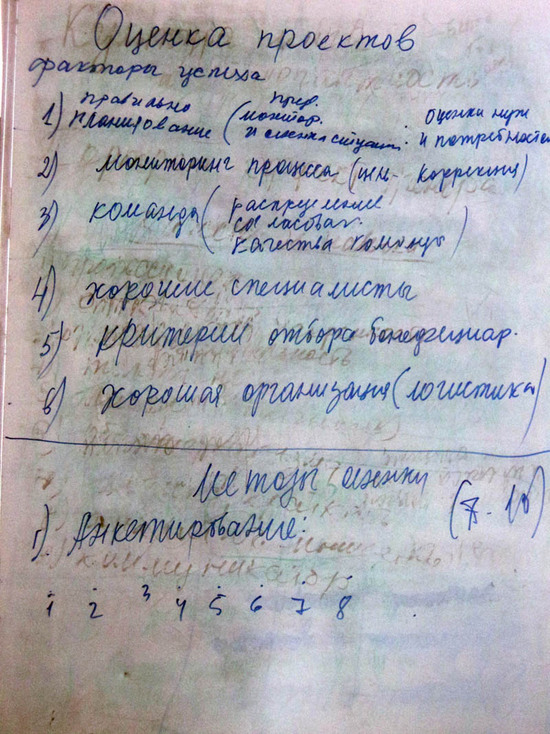 Оценка проектов
факторы успеха
1) Правильно планирование ( монитор. и оценка ситуац. оценки нужд и потребностей
2) Мониторинг процесса (цель - коррекция)
3) Команда ( распределение
согласован.
качества команды )
4) хорошие специалисты
5) критерии отбора бенефициар.
6) хорошая организация (логистика)
Методы оценки
1). Анкетирование: (7-10)
1 2 3 4 5 6 7 8